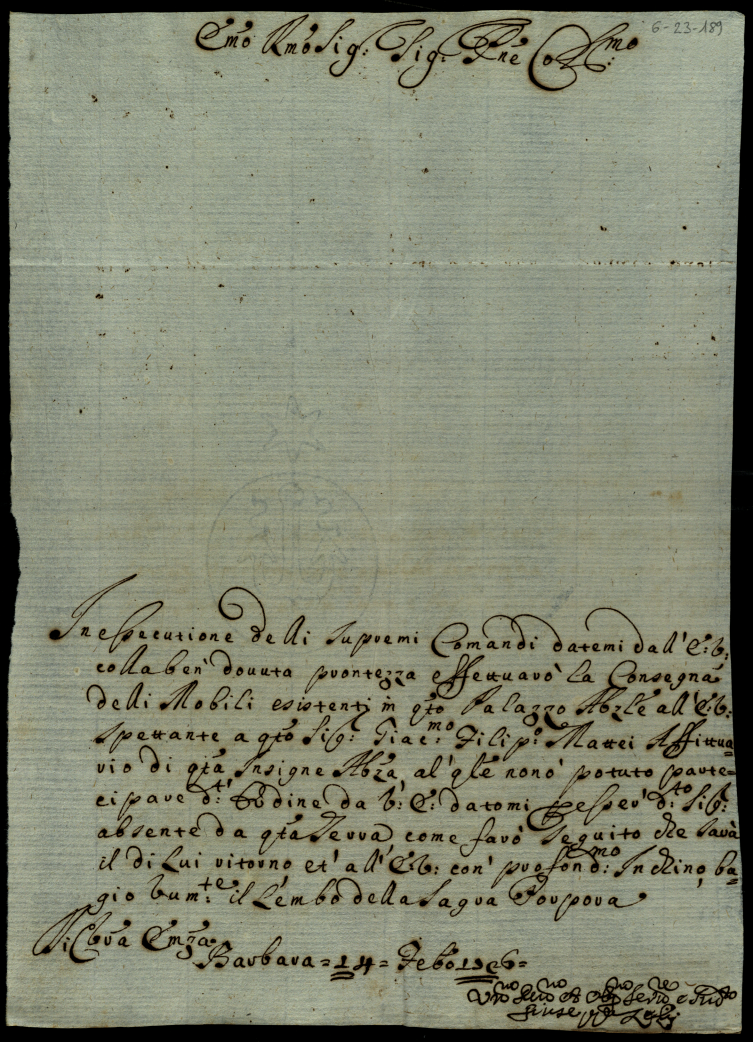 6-23-189
Emo Rmo Sig: Sig: Pne Colmo:
In essecutione delli supremi Comandi datemi dall' E: V:
colla ben' douuta prontezza effettuarò la Consegna
delli Mobili esistenti in qto Palazzo Abzle all' E: V:
spettante a qto Sig: Giac:mo Filip:o Mattei Affittua=
rio di qta Insigne Abza, al' qle non ò potuto parte=
cipare d:to Ordine da V: E: datomi p esser' d:to Sig:
absente da qta Terra come farò seguito che sarà
il di Lui ritorno et' all' E: V: con' profond:mo Inchino ba=
gio Vum:te il Lembo della Sagra Porpora
Di V̄ra Emza
Barbara = 14 = Febo
Vmo Deuo et Obl Serre
Giuse